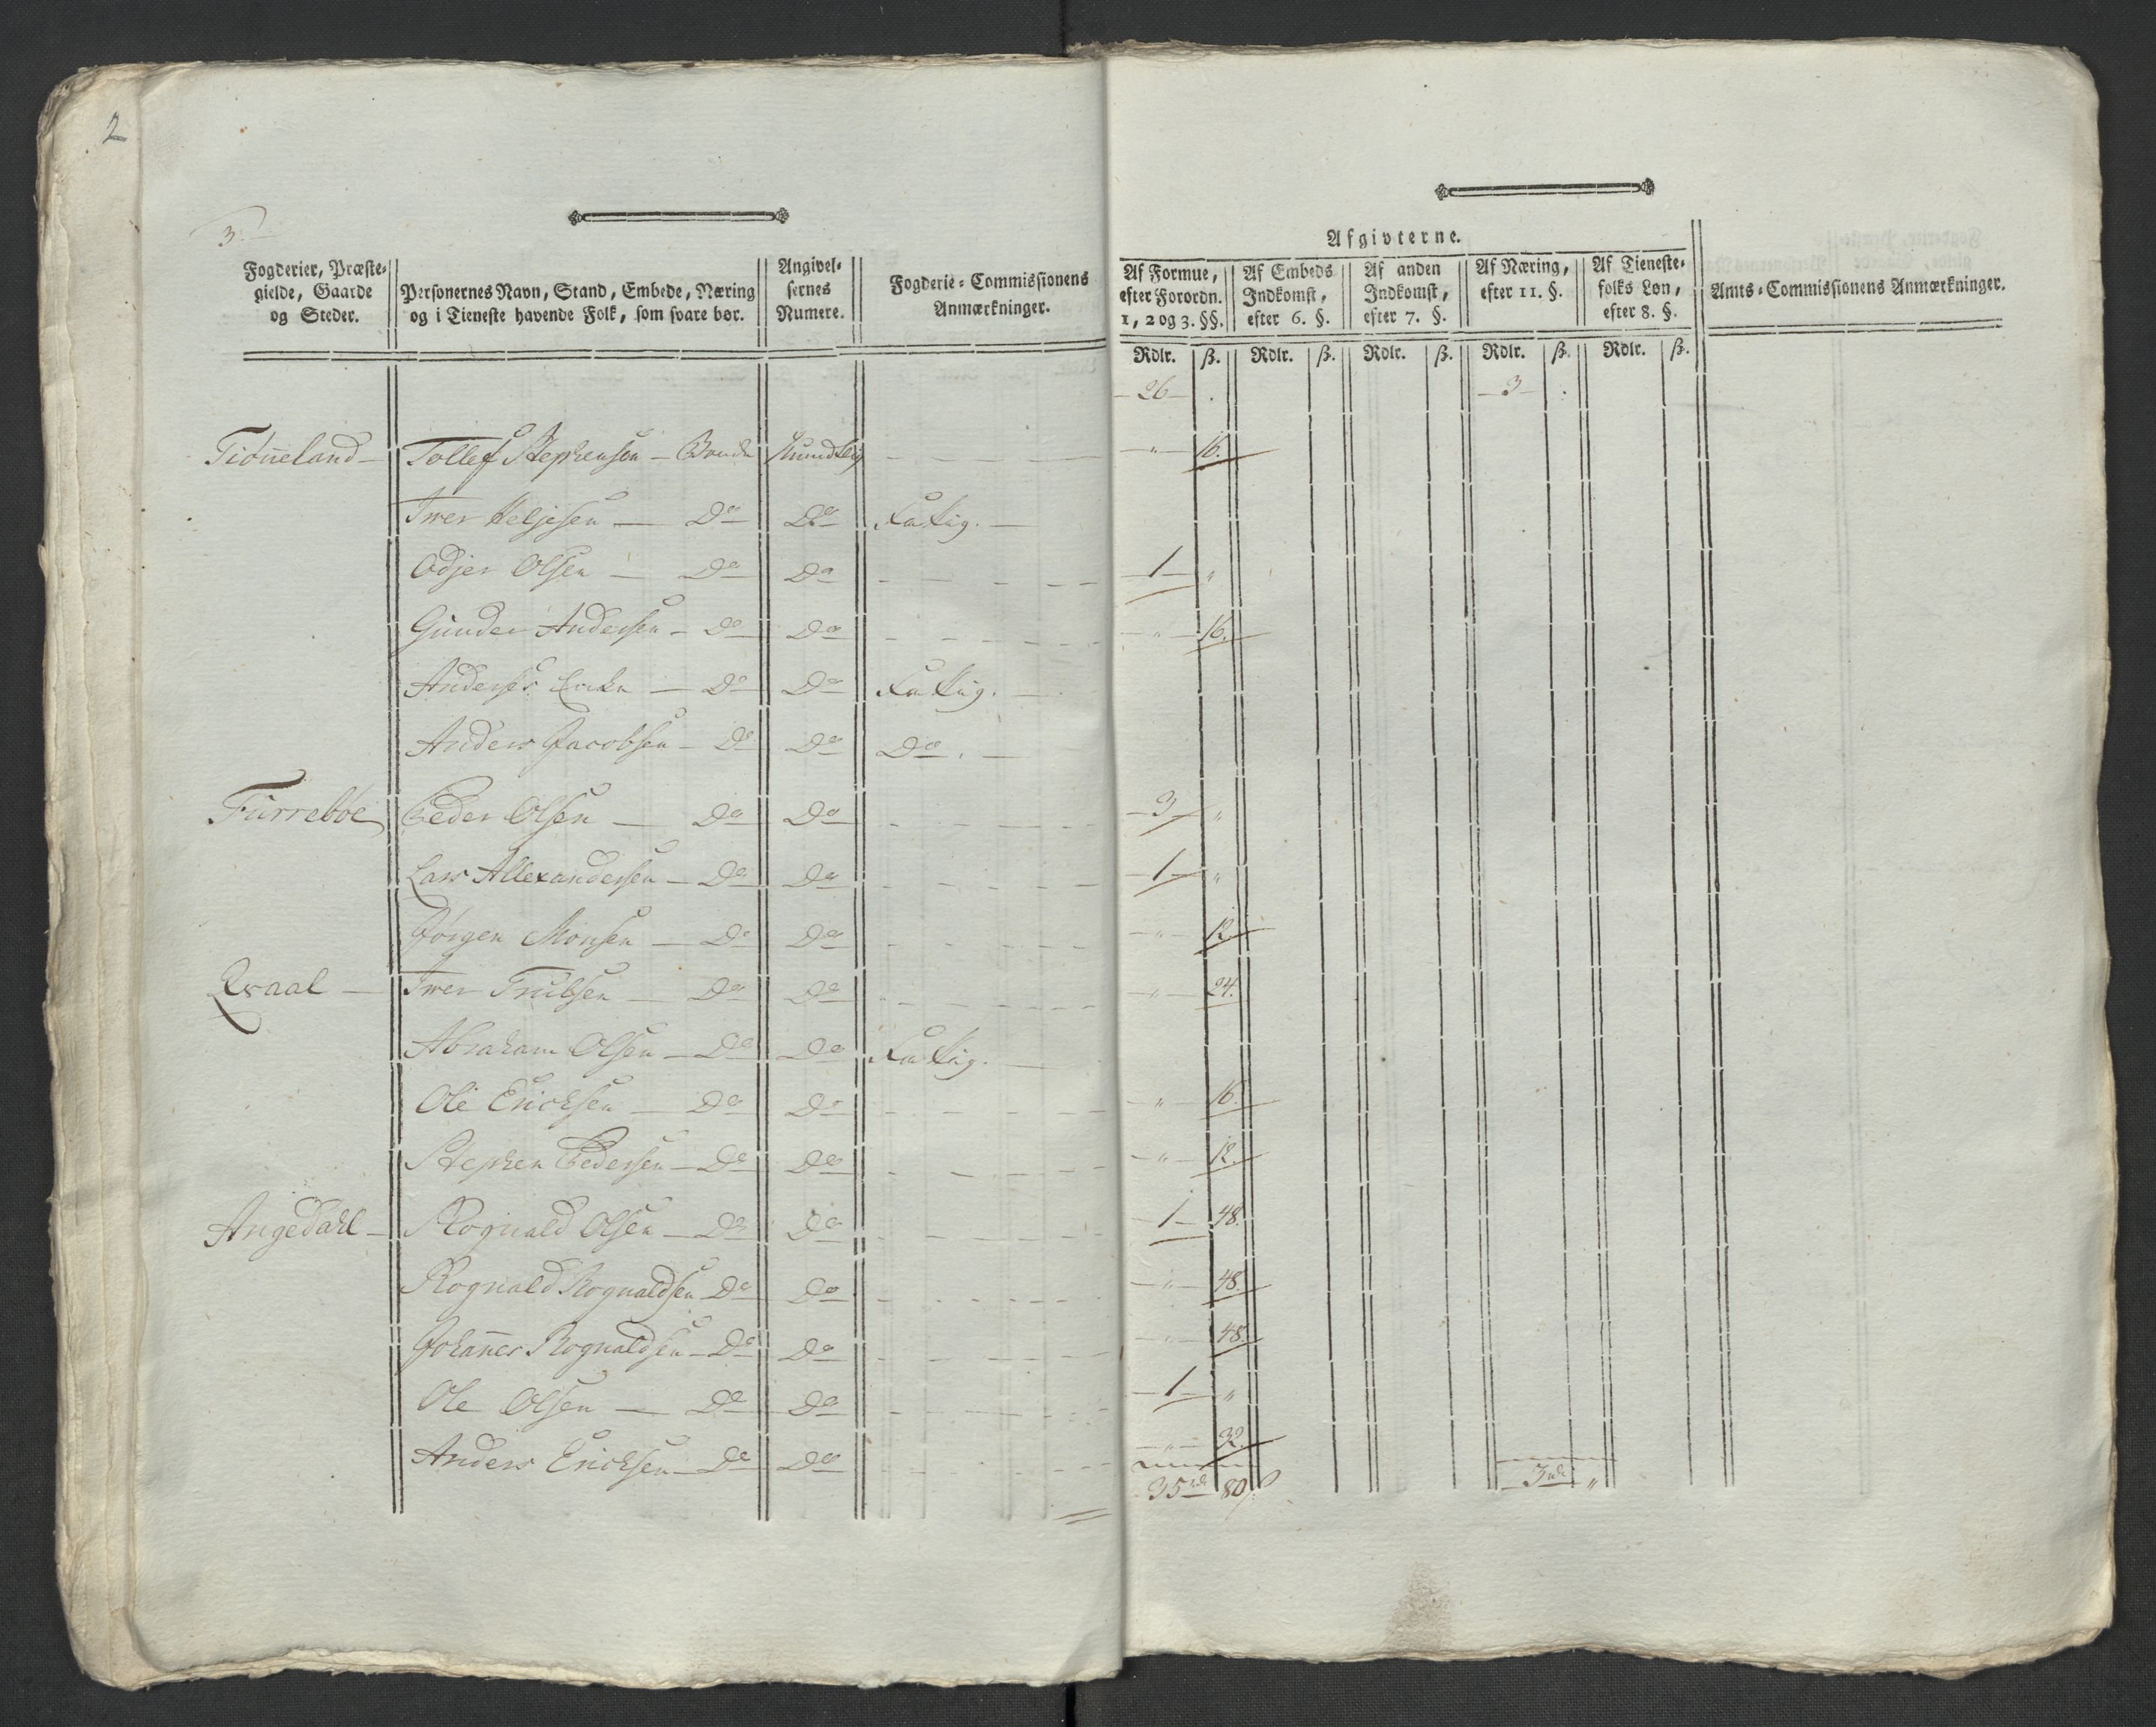 2
3.
Fogderier, Præste-
gielde, Gaarde
og Steder.
Personernes Navn, Stand, Embede, Næring
og i Tieneste havende Folk, som svare bør.
Angivel-
sernes
Numere.
Fogderie-Commissionens
Anmærkninger.
Afgivterne.
Af Formue,
efter Forordn.
1, 2 og 3. §§.
Af Embeds
Indkomst,
efter 6. §.
Af anden
Indkomst,
efter 7. §.
Af Næring,
efter 11. §.
Af Tieneste-
folks Løn,
efter 8. §.
Amts-Commissionens Anmærkninger.
Rdlr. ß. Rdlr. ß. Rdlr. ß. Rdlr. ß. Rdlr. ß.
— 26 — . — 3 — .
Tiøneland — Tollef Stephensen — Bonde Mundtlig — — — „ — 16.
Iwer Heljesen — Do Do Fattig. —
Odjer Olsen — Do Do — 1 — „
Gunder Andersen — Do Do — „ — 16.
Anders — Do Do Fattig. —
Anders Jacobsen — Do Do Do. —
Furrebøe Peder Olsen — Do Do — 3 — „
Lars Allexandersen — Do Do — 1 — „
Jørgen Monsen — Do Do — „ — 12.
Qvaal — Iwer Trulsen — Do Do — „ — 24.
Abraham Olsen — Do Do Fattig. —
Ole Ericksen — Do Do — „ — 16.
Stephen Pedersen — Do Do — „ — 12.
Angedahl — Rognald Olsen — Do Do — 1 — 48.
Rognald Rognaldsen Do Do — „ — 48.
Johannes Rognaldsen — Do Do — „ — 48.
Ole Olsen — Do Do — 1 — „
Anders Ericksen — Do Do — „ — 32.
35 rd 80 ß 3 rd „